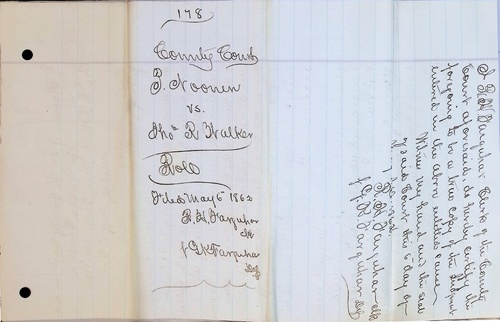 178
County Court
P. Noonen
vs.
Tho^s R Walker
Roll
Filed May 6 1862
R. H. Farquhar
clk
J GK Farquhar
Dy
I R H Farquhar Clerk of the County
Court aforesaid, do hereby certify the
foregoing to be a true copy of the Judgment
entered in the above entitled cause.
Witness my hand and the seal
of said Court this 6 day of
R H Farquhar clk
J G K Farquhar Dy